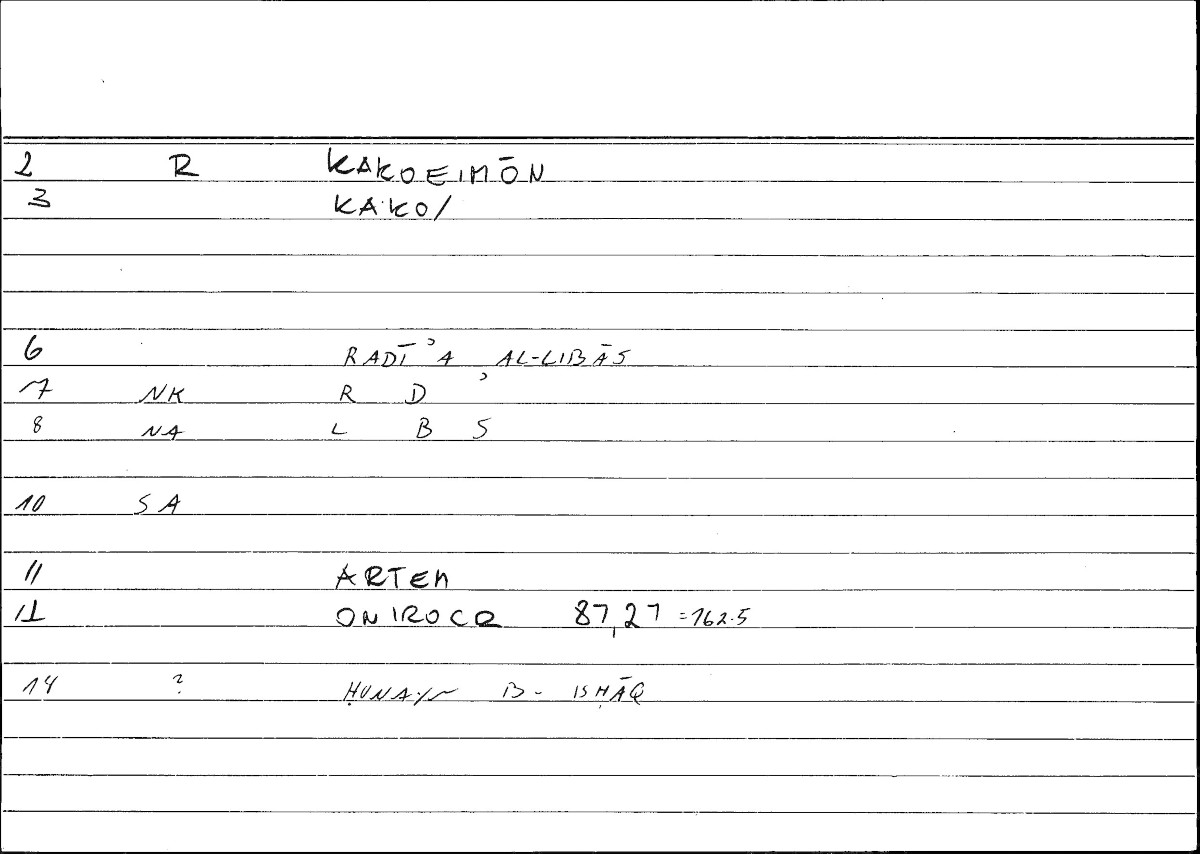 2 R KAKOEIMŌN
3 KAKO/
6 RADĪʾA AL-LIBĀS
7 NK R D ʾ
8 NA L B S
10 SA
11 ARTEM
12 ONIROCR 87,27 =162.5
14 ? ḤUNAYN B- ISḤĀQ